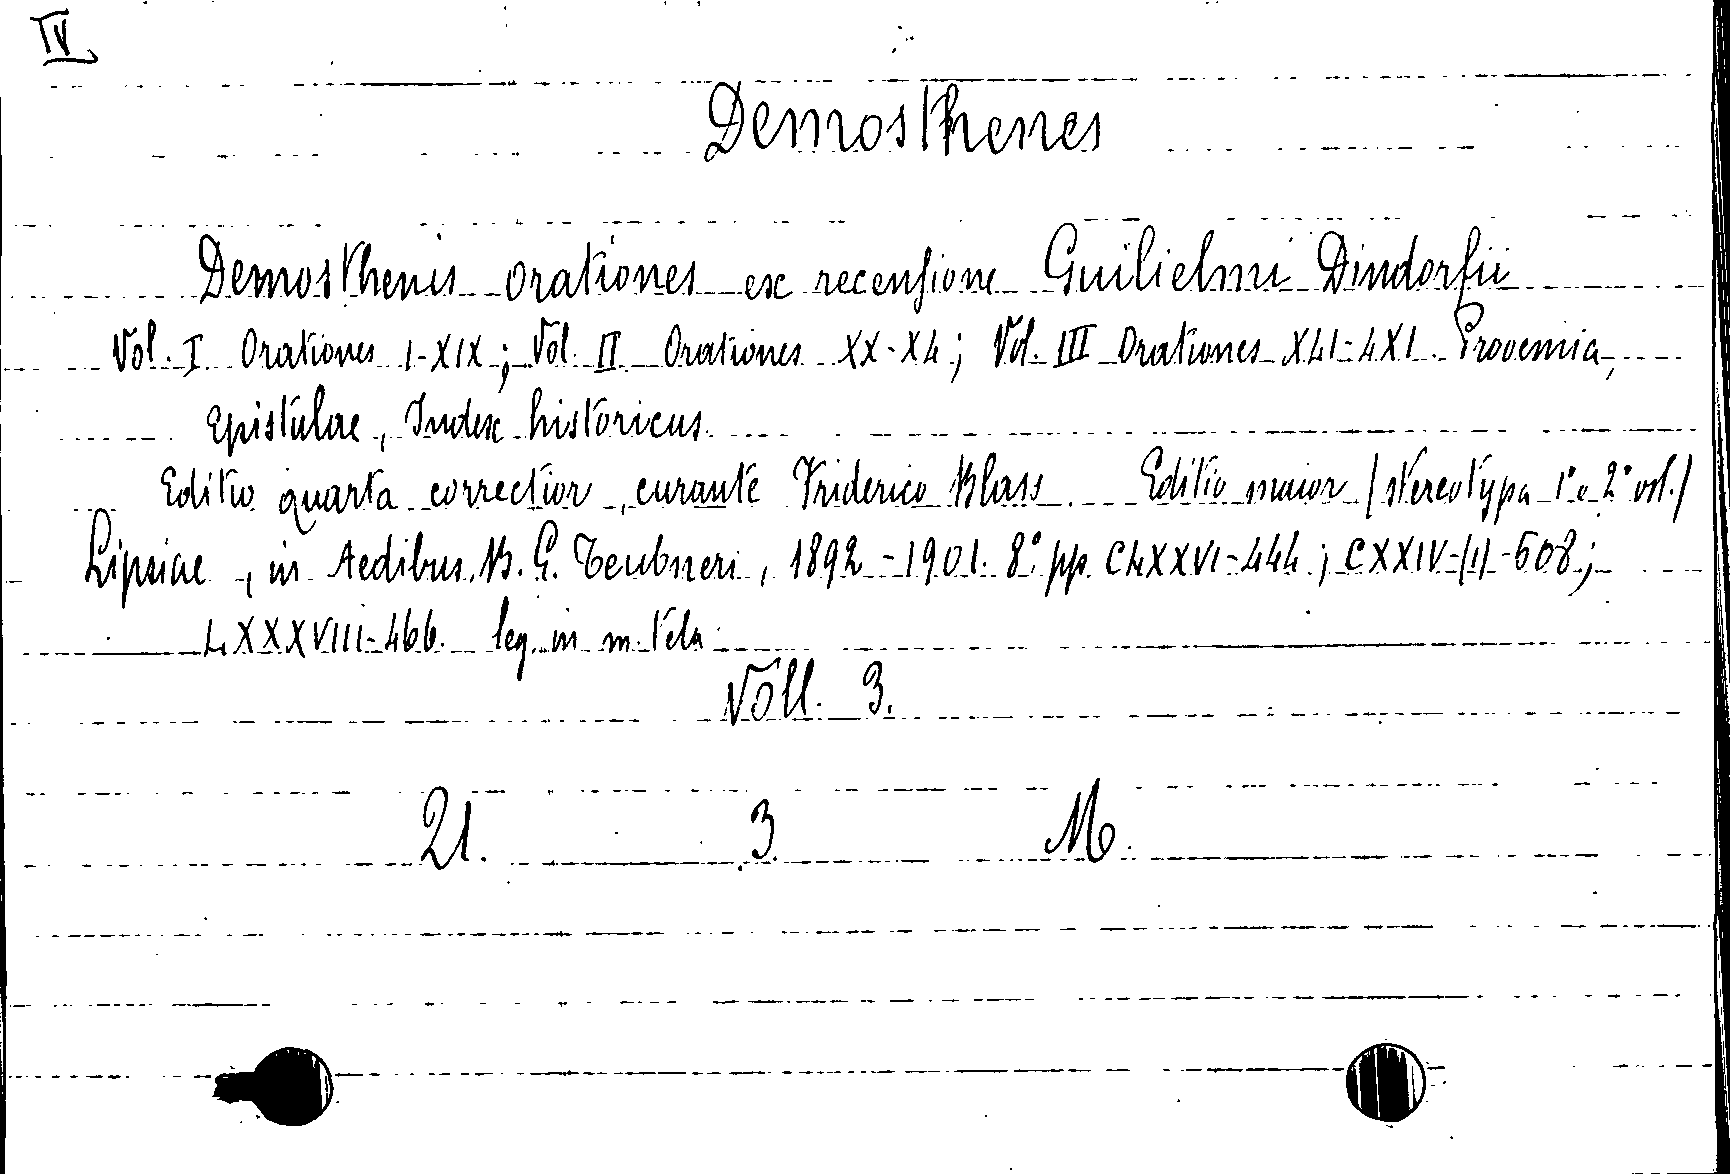 IV
Demosthenes
Demosthenis orationes ex recensione Guilielmi Dindorfii
Vol. I Orationes I-XIX; Vol. II Orationes XX-XL; Vol. III Orationes XLI-LXI. Prooemia,
Epistulae, Index historicus.
Editio quarta correctior, curante Friderico Blass. Editio maior (stereotypa 1° e 2° vol.)
Lipsiae, in Aedibus B. G. Teubneri, 1892-1901. 8° pp. CLXXVI-444; CXXIV-(1)-508;
LXXXVIII-466. leg. in m. tela.
Voll. 3.
21. 3. M.